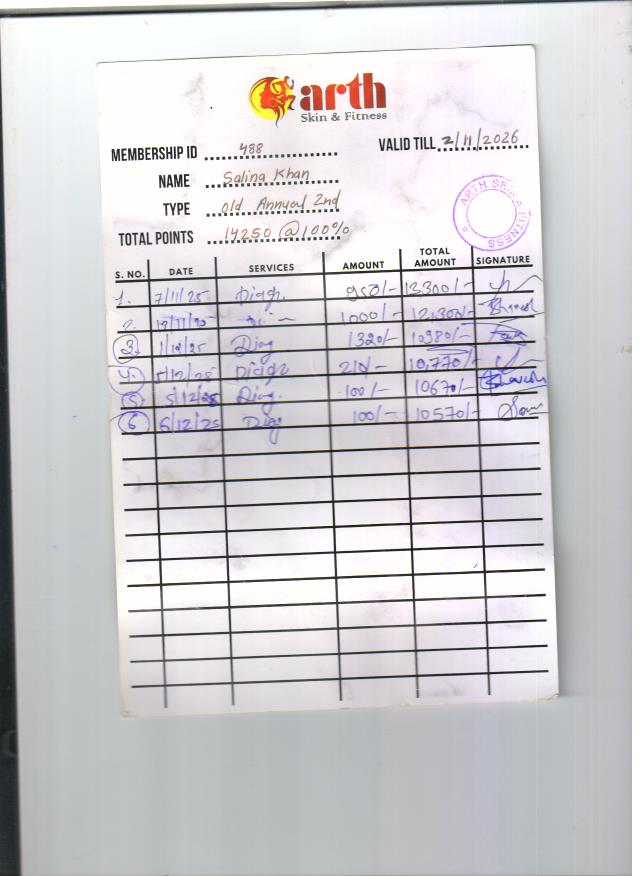 arth
Skin & Fitness
MEMBERSHIP ID 488 VALID TILL 2/11/2026
NAME Salina Khan
TYPE Old Annual 2nd
TOTAL POINTS 14250 @ 100%
ARTH SKIN & FITNESS
S. NO. DATE SERVICES AMOUNT TOTAL AMOUNT SIGNATURE
1. 7/11/25 950/- 13,300/-
2. 1000/- 12,300/-
3. 1/12/25 1320/- 10980/-
4. 5/12/25 210/- 10,770/-
5. 5/12/25 100/- 10670/-
6 6/12/25 100/- 10570/-